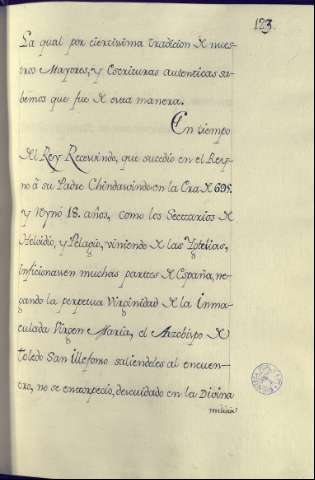 123.
La qual por ciertisima tradicion de nues-
tros Mayores, y Escrituras autenticas sa-
bemos que fue de otra manera.
En tiempo
del Rey Recevindo, que sucedió en el Rey-
no á su Padre Chindasvindo en la Era de 695.
y reynó 18. años, como los Sectarios de
Helvidio, y Pelagio, viniendo de las Iglesias,
inficionasen muchas partes de España, ne-
gando la perpetua Virginidad de la Inma-
culada Virgen Maria, el Arzobispo de
Toledo San Illefonso saliendoles al encuen-
tro, no se entorpeció, descuidado en la Divina